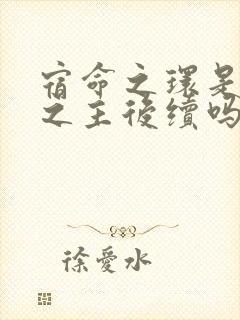 宿命之環是
之主後續嗎
徐愛水